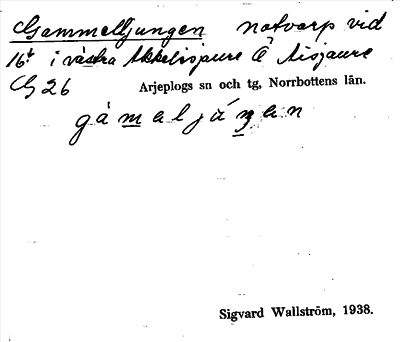 Gammelljungen notvarp vid
16b i västra Akkelisjaure å Aisjaure
G 26 Arjeplogs sn och tg, Norrbottens län.
gàmaljúŋən
Sigvard Wallström, 1938.